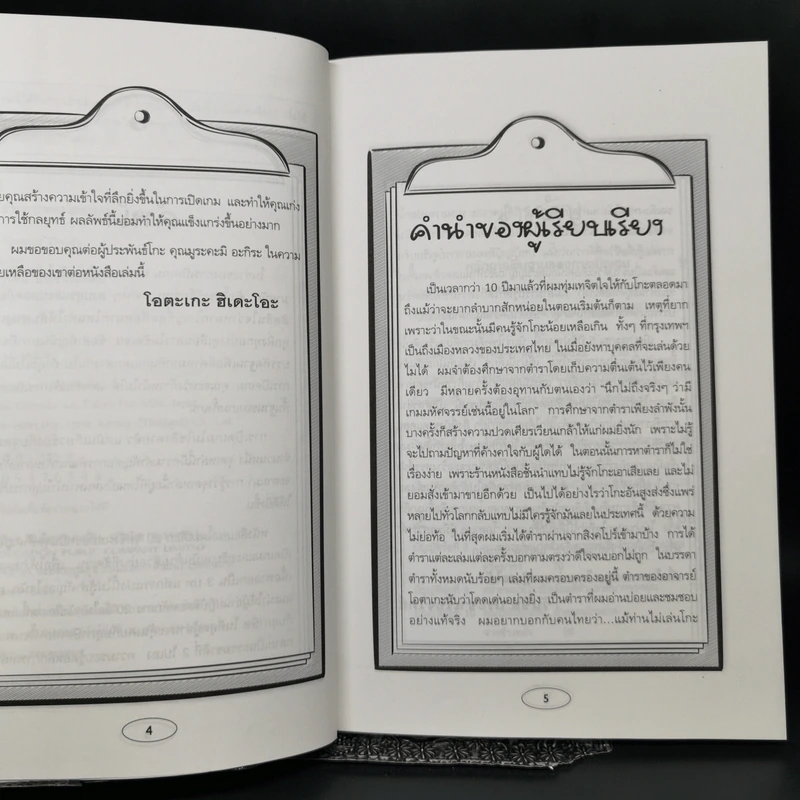 ยคุณสร้างความเข้าใจที่ลึกยิ่งขึ้นในการเปิดเกม และทำให้คุณเก่ง
การใช้กลยุทธ์ ผลลัพธ์นี้ย่อมทำให้คุณแข็งแกร่งขึ้นอย่างมาก
ผมขอขอบคุณต่อผู้ประพันธ์โกะ คุณมูระคะมิ อะกิระ ในความ
ยเหลือของเขาต่อหนังสือเล่มนี้
โอตะเกะ ฮิเดะโอะ
4
คำนำของผู้เรียบเรียง
เป็นเวลากว่า 10 ปีมาแล้วที่ผมทุ่มเทจิตใจให้กับโกะตลอดมา
ถึงแม้ว่าจะยากลำบากสักหน่อยในตอนเริ่มต้นก็ตาม เหตุที่ยาก
เพราะว่าในขณะนั้นมีคนรู้จักโกะน้อยเหลือเกิน ทั้งๆ ที่กรุงเทพฯ
เป็นถึงเมืองหลวงของประเทศไทย ในเมื่อยังหาบุคคลที่จะเล่นด้วย
ไม่ได้ ผมจำต้องศึกษาจากตำราโดยเก็บความตื่นเต้นไว้เพียงคน
เดียว มีหลายครั้งต้องอุทานกับตนเองว่า "นึกไม่ถึงจริงๆ ว่ามี
เกมมหัศจรรย์เช่นนี้อยู่ในโลก" การศึกษาจากตำราเพียงลำพังนั้น
บางครั้งก็สร้างความปวดเศียรเวียนเกล้าให้แก่ผมยิ่งนัก เพราะไม่รู้
จะไปถามปัญหาที่ค้างคาใจกับผู้ใดได้ ในตอนนั้นการหาตำราก็ไม่ใช่
เรื่องง่าย เพราะร้านหนังสือชั้นนำแทบไม่รู้จักโกะเอาเสียเลย และไม่
ยอมสั่งเข้ามาขายอีกด้วย เป็นไปได้อย่างไรว่าโกะอันสูงส่งซึ่งแพร่
หลายไปทั่วโลกกลับแทบไม่มีใครรู้จักมันเลยในประเทศนี้ ด้วยความ
ไม่ย่อท้อ ในที่สุดผมเริ่มได้ตำราผ่านจากสิงคโปร์เข้ามาบ้าง การได้
ตำราแต่ละเล่มแต่ละครั้งบอกตามตรงว่าดีใจจนบอกไม่ถูก ในบรรดา
ตำราทั้งหมดนับร้อยๆ เล่มที่ผมครอบครองอยู่นี้ ตำราของอาจารย์
โอตาเกะนับว่าโดดเด่นอย่างยิ่ง เป็นตำราที่ผมอ่านบ่อยและชมชอบ
อย่างแท้จริง ผมอยากบอกกับคนไทยว่า...แม้ท่านไม่เล่นโกะ
5